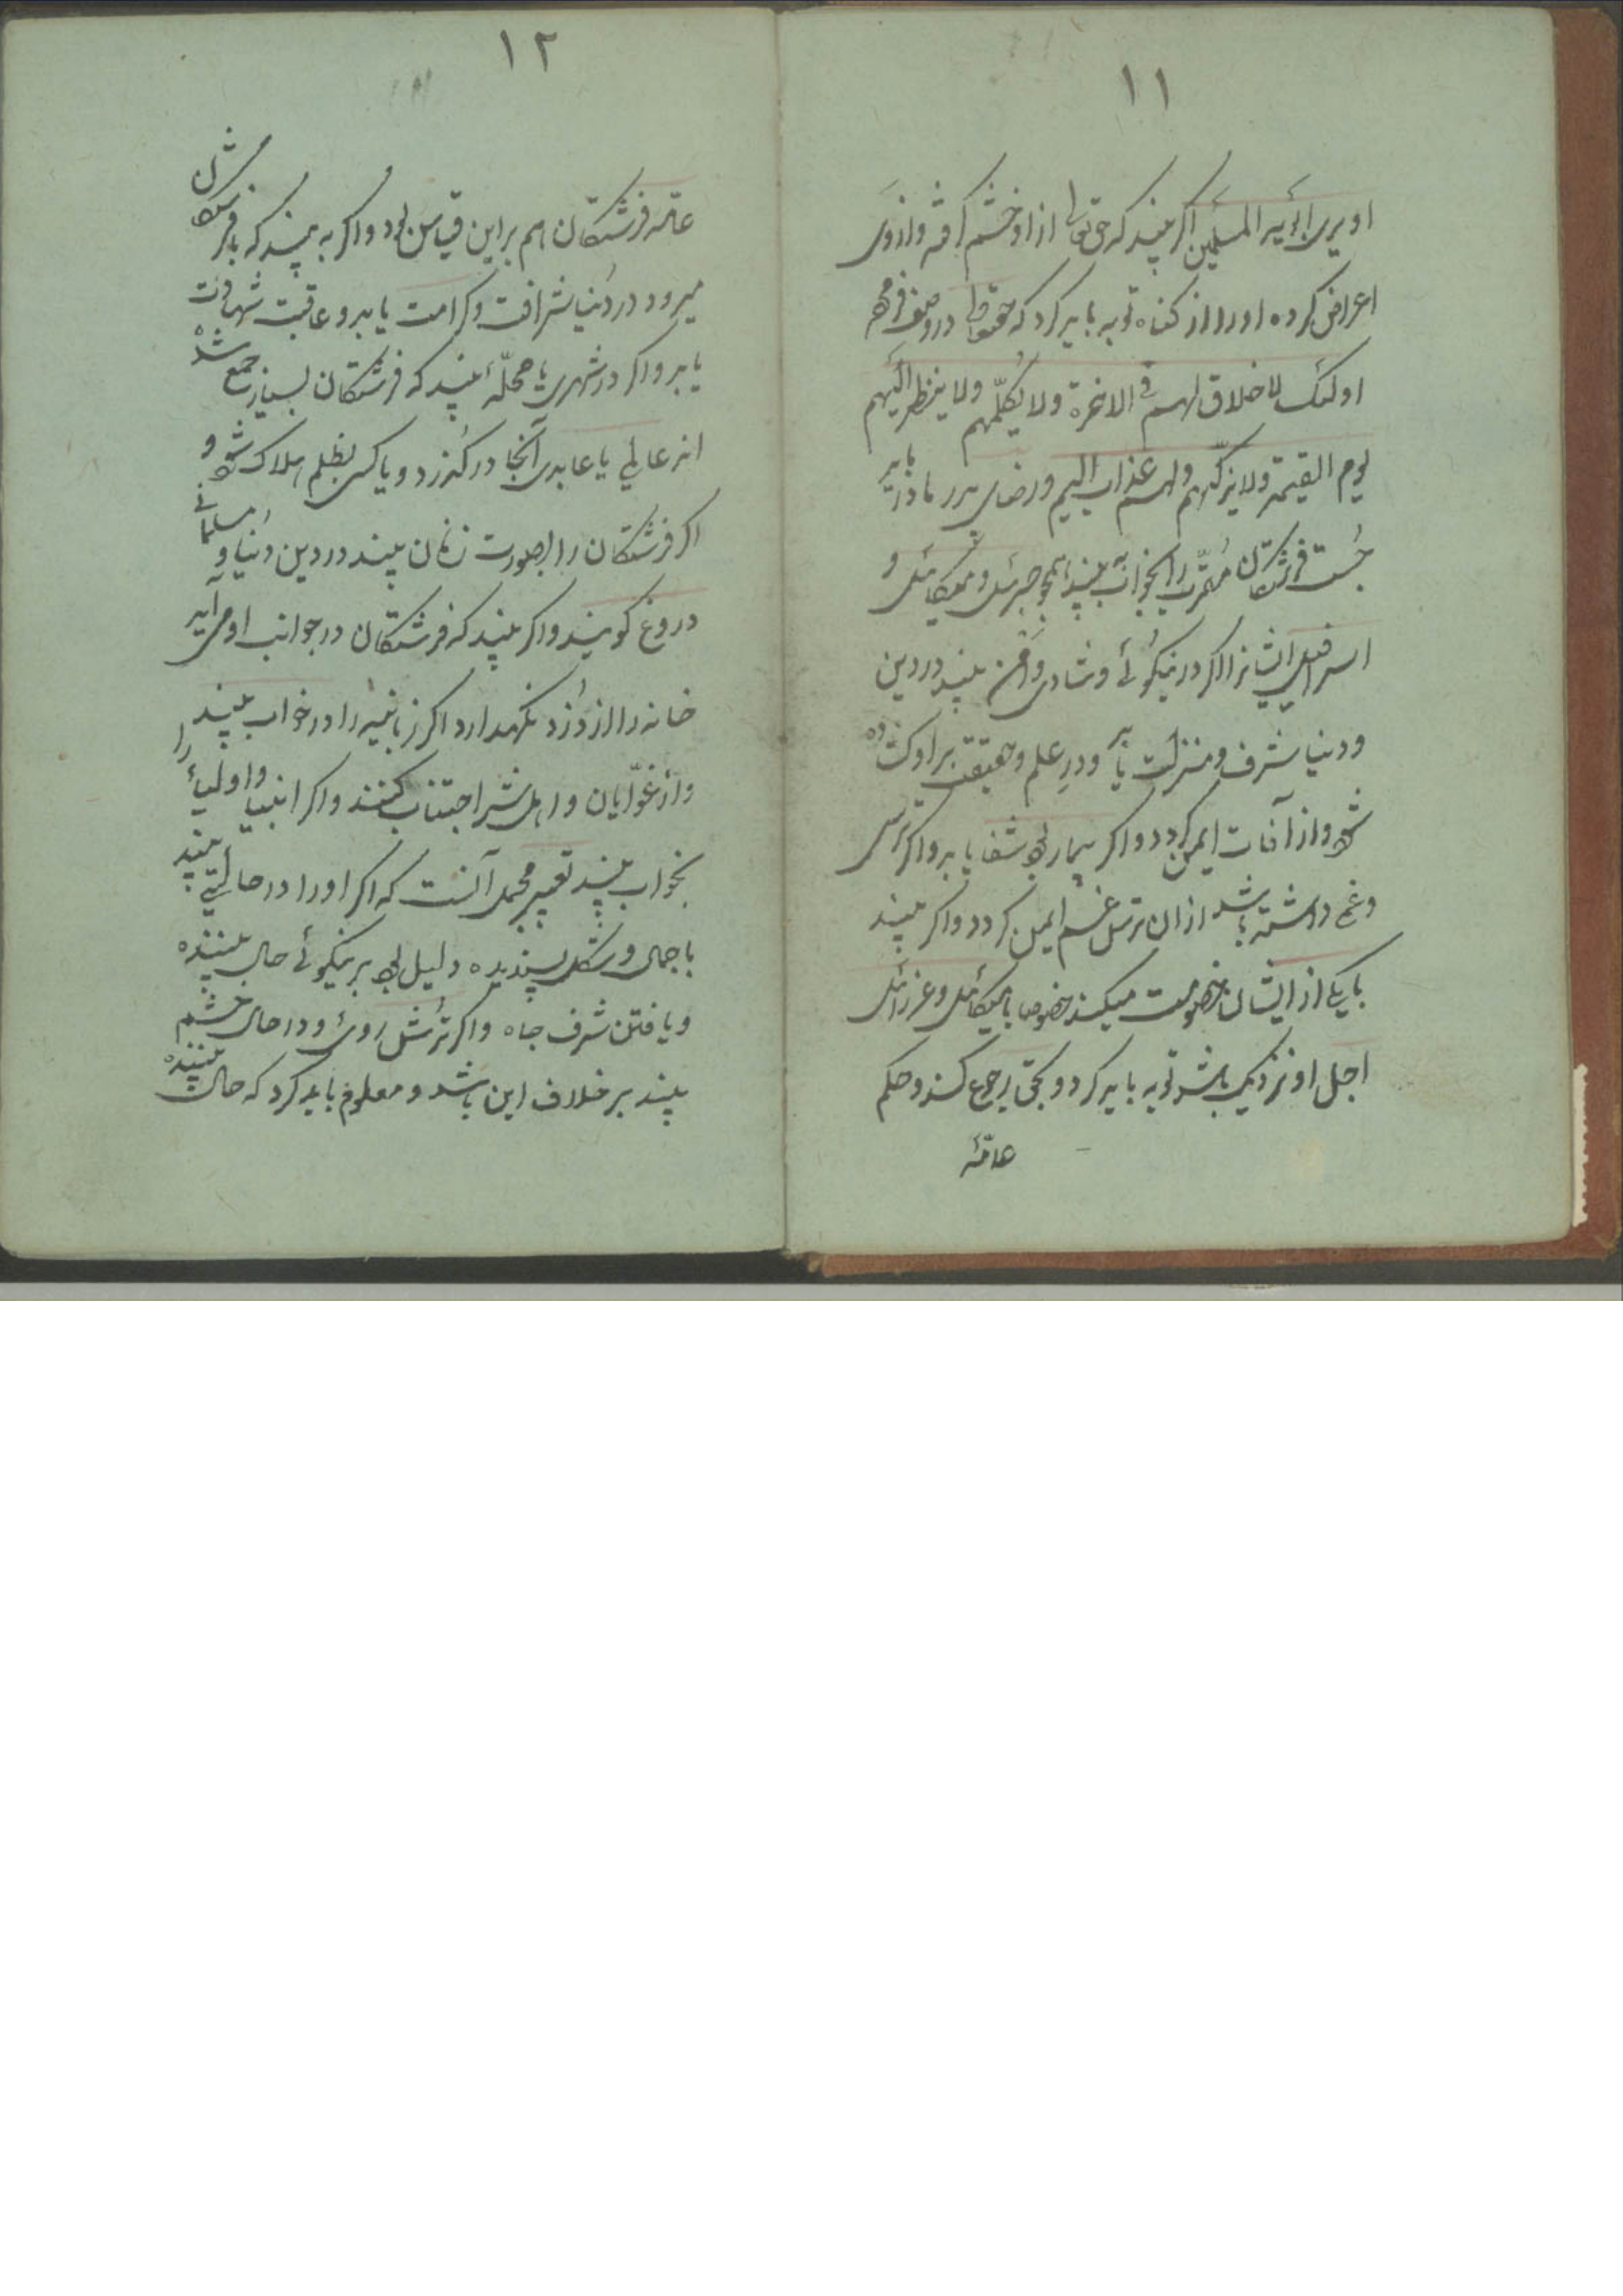 ۱۱
او یری الرؤیه المسلمین اگر بیند که حق تعالی از او خشم گرفته و از وی
اعراض کرده او را از کناه توبه باید کرد که حقتعالی در وصف
اولئک لا خلاق لهم فی الاخرة ولا یکلّمهم ولا ینظر الیهم
یوم القیمة ولا یزکّیهم ولهم عذاب الیم و رضای پدر و مادر باید
جُست فرشتگان مقرّب را بخواب بیند همچو جبرئیل و میکائیل و
اسرافیل ایشانرا اگر در نیکوئے و شادی بیند در دین
و دنیا شرف و منزلت یابد و در علم و حقیقت بر او کشاده
شود و از آفات ایمن کردد و اگر بیمار بود شفا یابد و اگر ترسی
و غم داشته باشد ازان ترس غم ایمن کردد و اگر بیند
با یکے از ایشان خصومت میکند خصوصا با میکائیل و عزرائیل
اجل او نزدیک باشد توبه باید کرد و بحق رجوع کند و حکم
عامّهٔ
۱۲
عامّه فرشتگان هم بر این قیاس بود و اگر به بیند که با فرشتگان
میرود در دنیا شرافت و کرامت یابد و عاقبت شهادت
یابد و اگر در شهری یا محلّهٔ بیند که فرشتگان بسیار جمع شده
اند عالمی یا عابدی آنجا در گذرد و یا کسی بظلم هلاک شود و
اگر فرشتگان را بصورت زنان بیند در دین و دنیا و مسلمانے
دروغ کویند و اگر بیند که فرشتگان در جوانب او می آیند
خانه را از دُزد نگهدارد اگر زبانیه را در خواب بیند
و از غوّایان و اهل شر اجتناب کنند و اگر انبیا و اولیاء را
بخواب بیند تعبیر مجمل آنست که اگر او را در حالتے بیند
با جمال و شکل پسندیده دلیل بود بر نیکوئے حال بیننده
و یافتن شرف جاه و اگر تُرش روئ و در حال خشم
بیند بر خلاف این باشد و معلوم باید کرد که حال بیننده